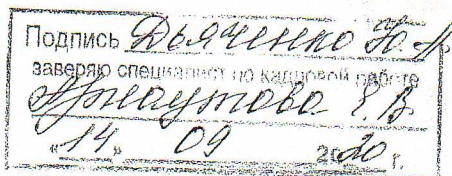 Подпись Дьяченко Ю.А.
заверяю специалист по кадровой работе
Арнаутова Е.В.
«14» 09 2020 г.